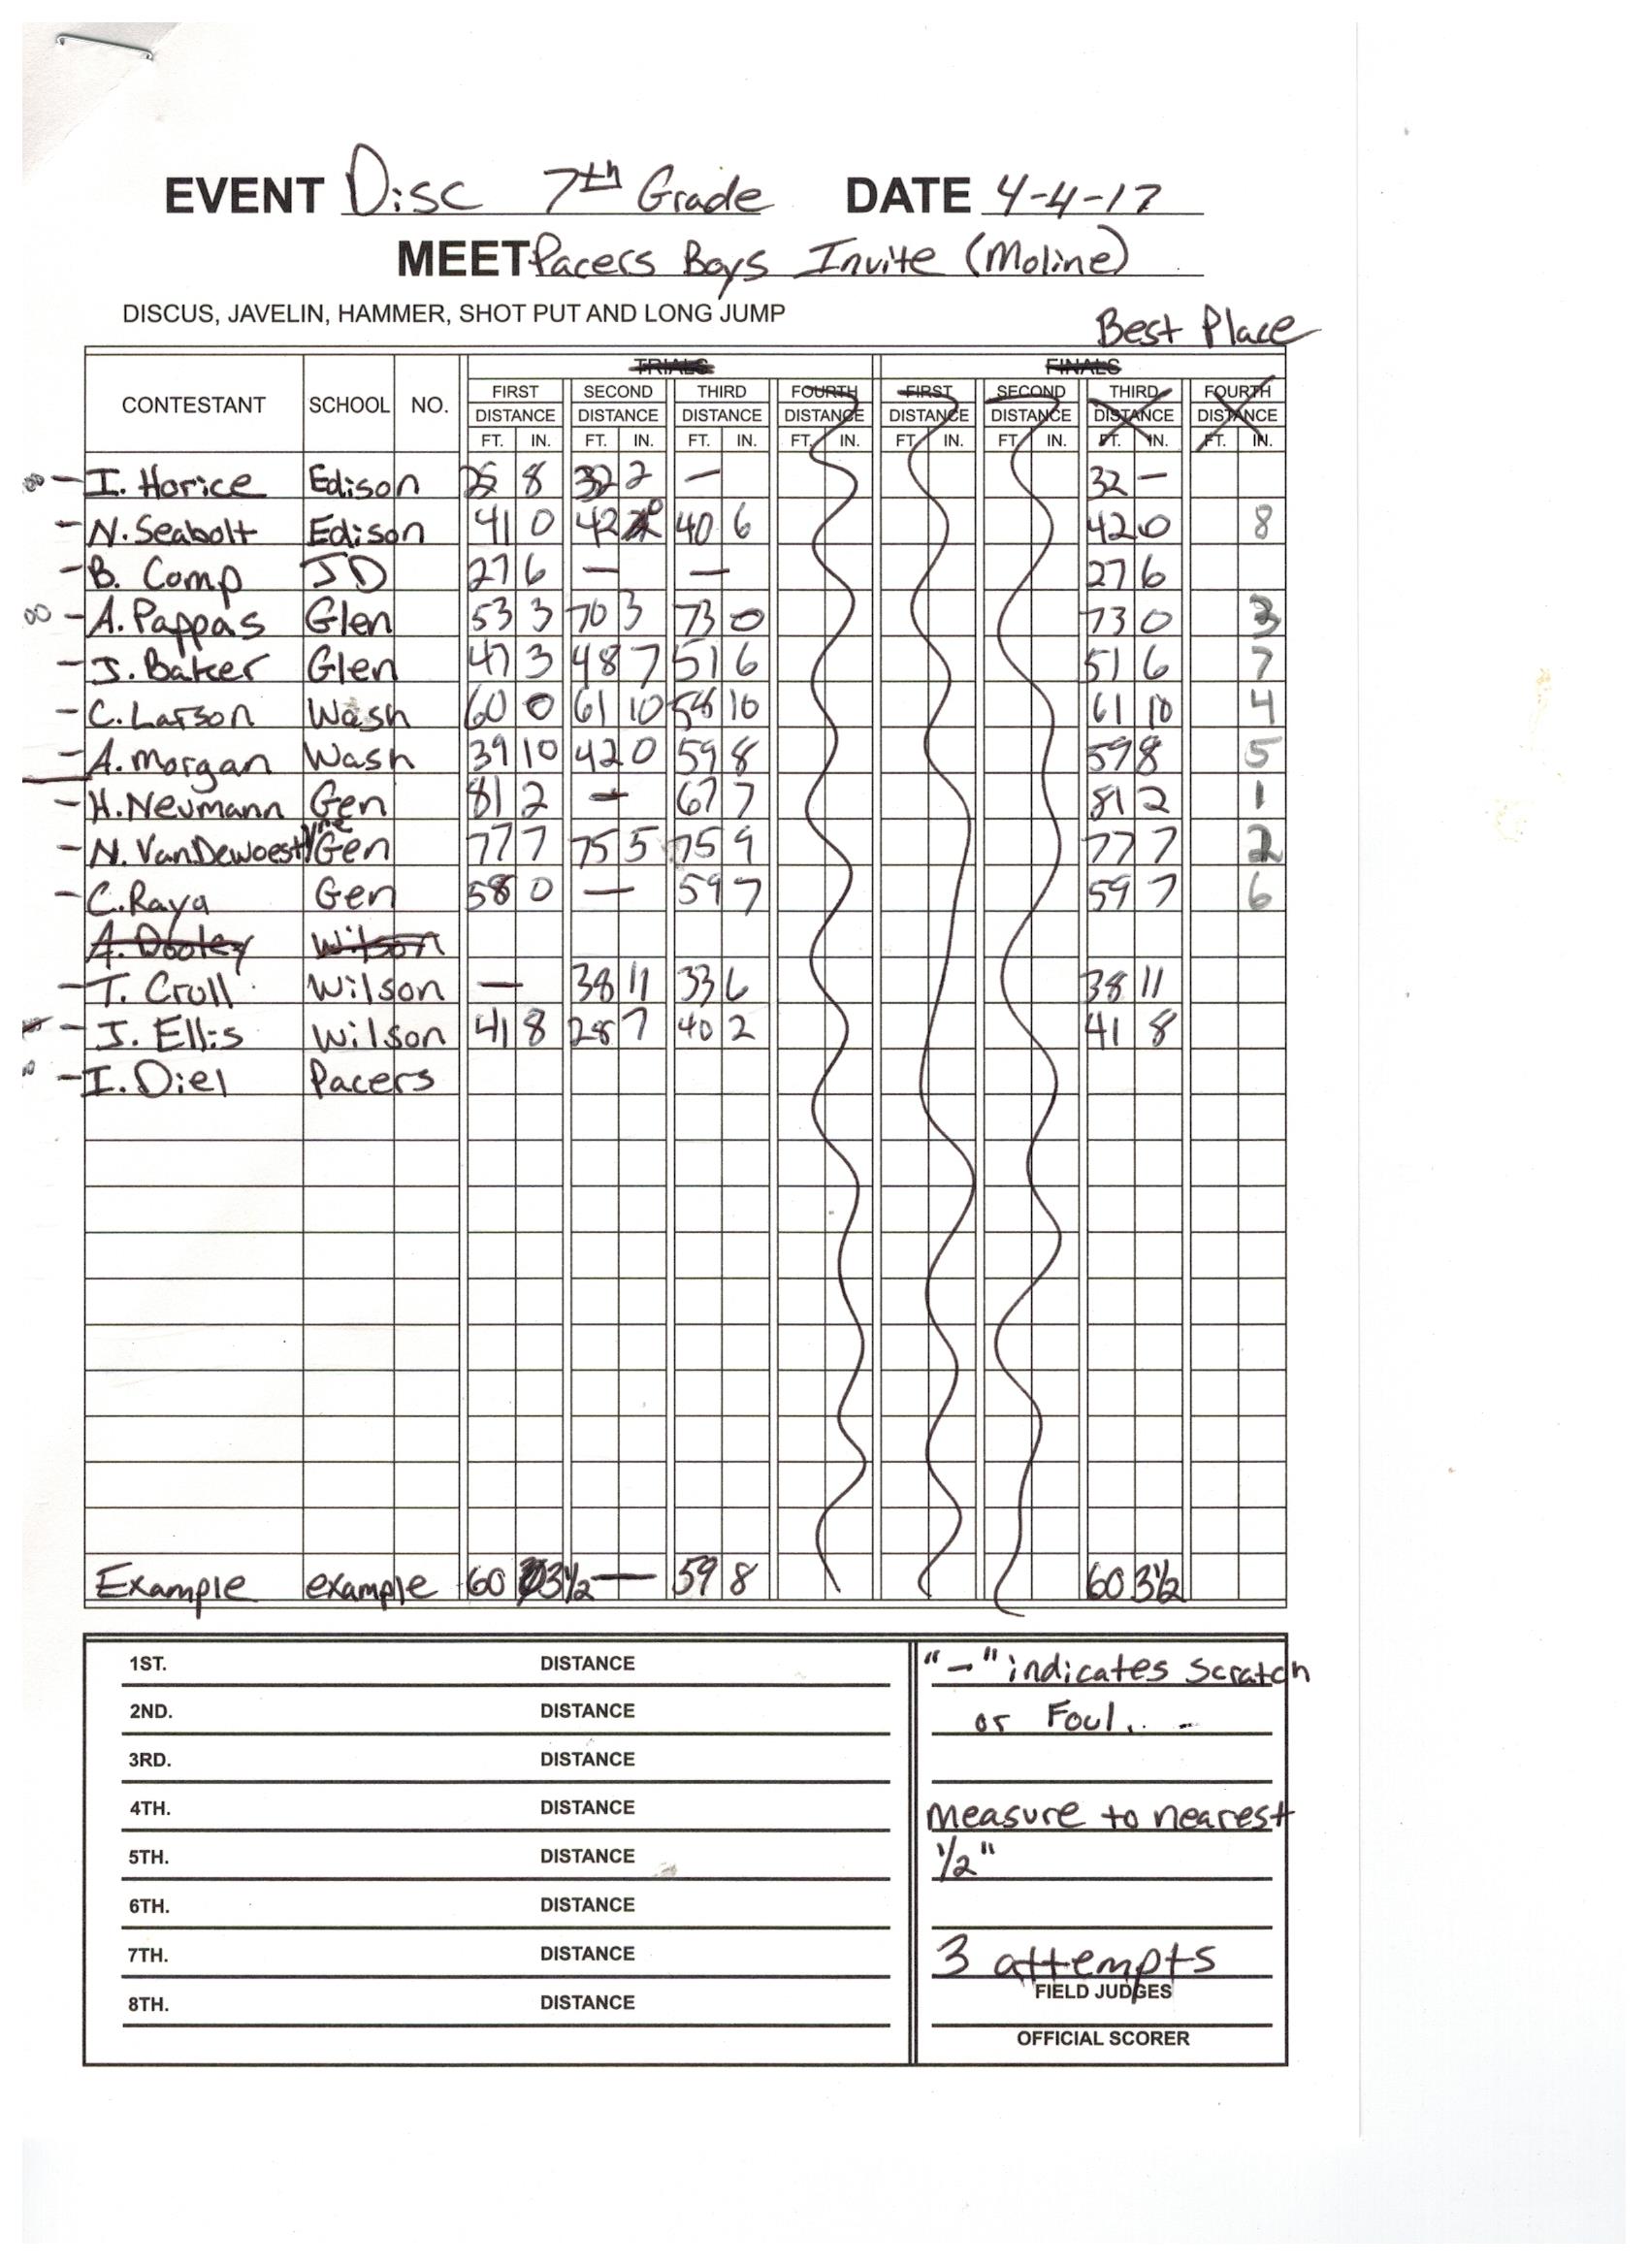 EVENT Disc 7th Grade DATE 4-4-17
MEET Pacers Boys Invite (Moline)
DISCUS, JAVELIN, HAMMER, SHOT PUT AND LONG JUMP
Best Place
TRIALS FINALS
CONTESTANT SCHOOL NO. FIRST SECOND THIRD FOURTH FIRST SECOND THIRD FOURTH
DISTANCE DISTANCE DISTANCE DISTANCE DISTANCE DISTANCE DISTANCE DISTANCE
FT. IN. FT. IN. FT. IN. FT. IN. FT. IN. FT. IN. FT. IN. FT. IN.
- I. Horice Edison 25 8 32 2 — 32 —
- N. Seabolt Edison 41 0 42 0 40 6 42 0 8
- B. Comp JD 27 6 — — 27 6
- A. Pappas Glen 53 3 70 3 73 0 73 0 3
- J. Baker Glen 47 3 48 7 51 6 51 6 7
- C. Larson Wash 60 0 61 10 58 10 61 10 4
- A. Morgan Wash 39 10 42 0 59 8 59 8 5
- H. Neumann Gen 81 2 — 67 7 81 2 1
- N. VanDewoestyne Gen 77 7 75 5 75 9 77 7 2
- C. Raya Gen 58 0 — 59 7 59 7 6
A. Dooley Wilson
- T. Croll Wilson — 38 11 33 6 38 11
- J. Ellis Wilson 41 8 28 7 40 2 41 8
- I. Diel Pacers
Example example 60 3½ — 59 8 60 3½
1ST. DISTANCE "-" indicates scratch
2ND. DISTANCE or Foul.
3RD. DISTANCE
4TH. DISTANCE Measure to nearest
5TH. DISTANCE ½"
6TH. DISTANCE
7TH. DISTANCE 3 attempts
FIELD JUDGES
8TH. DISTANCE
OFFICIAL SCORER